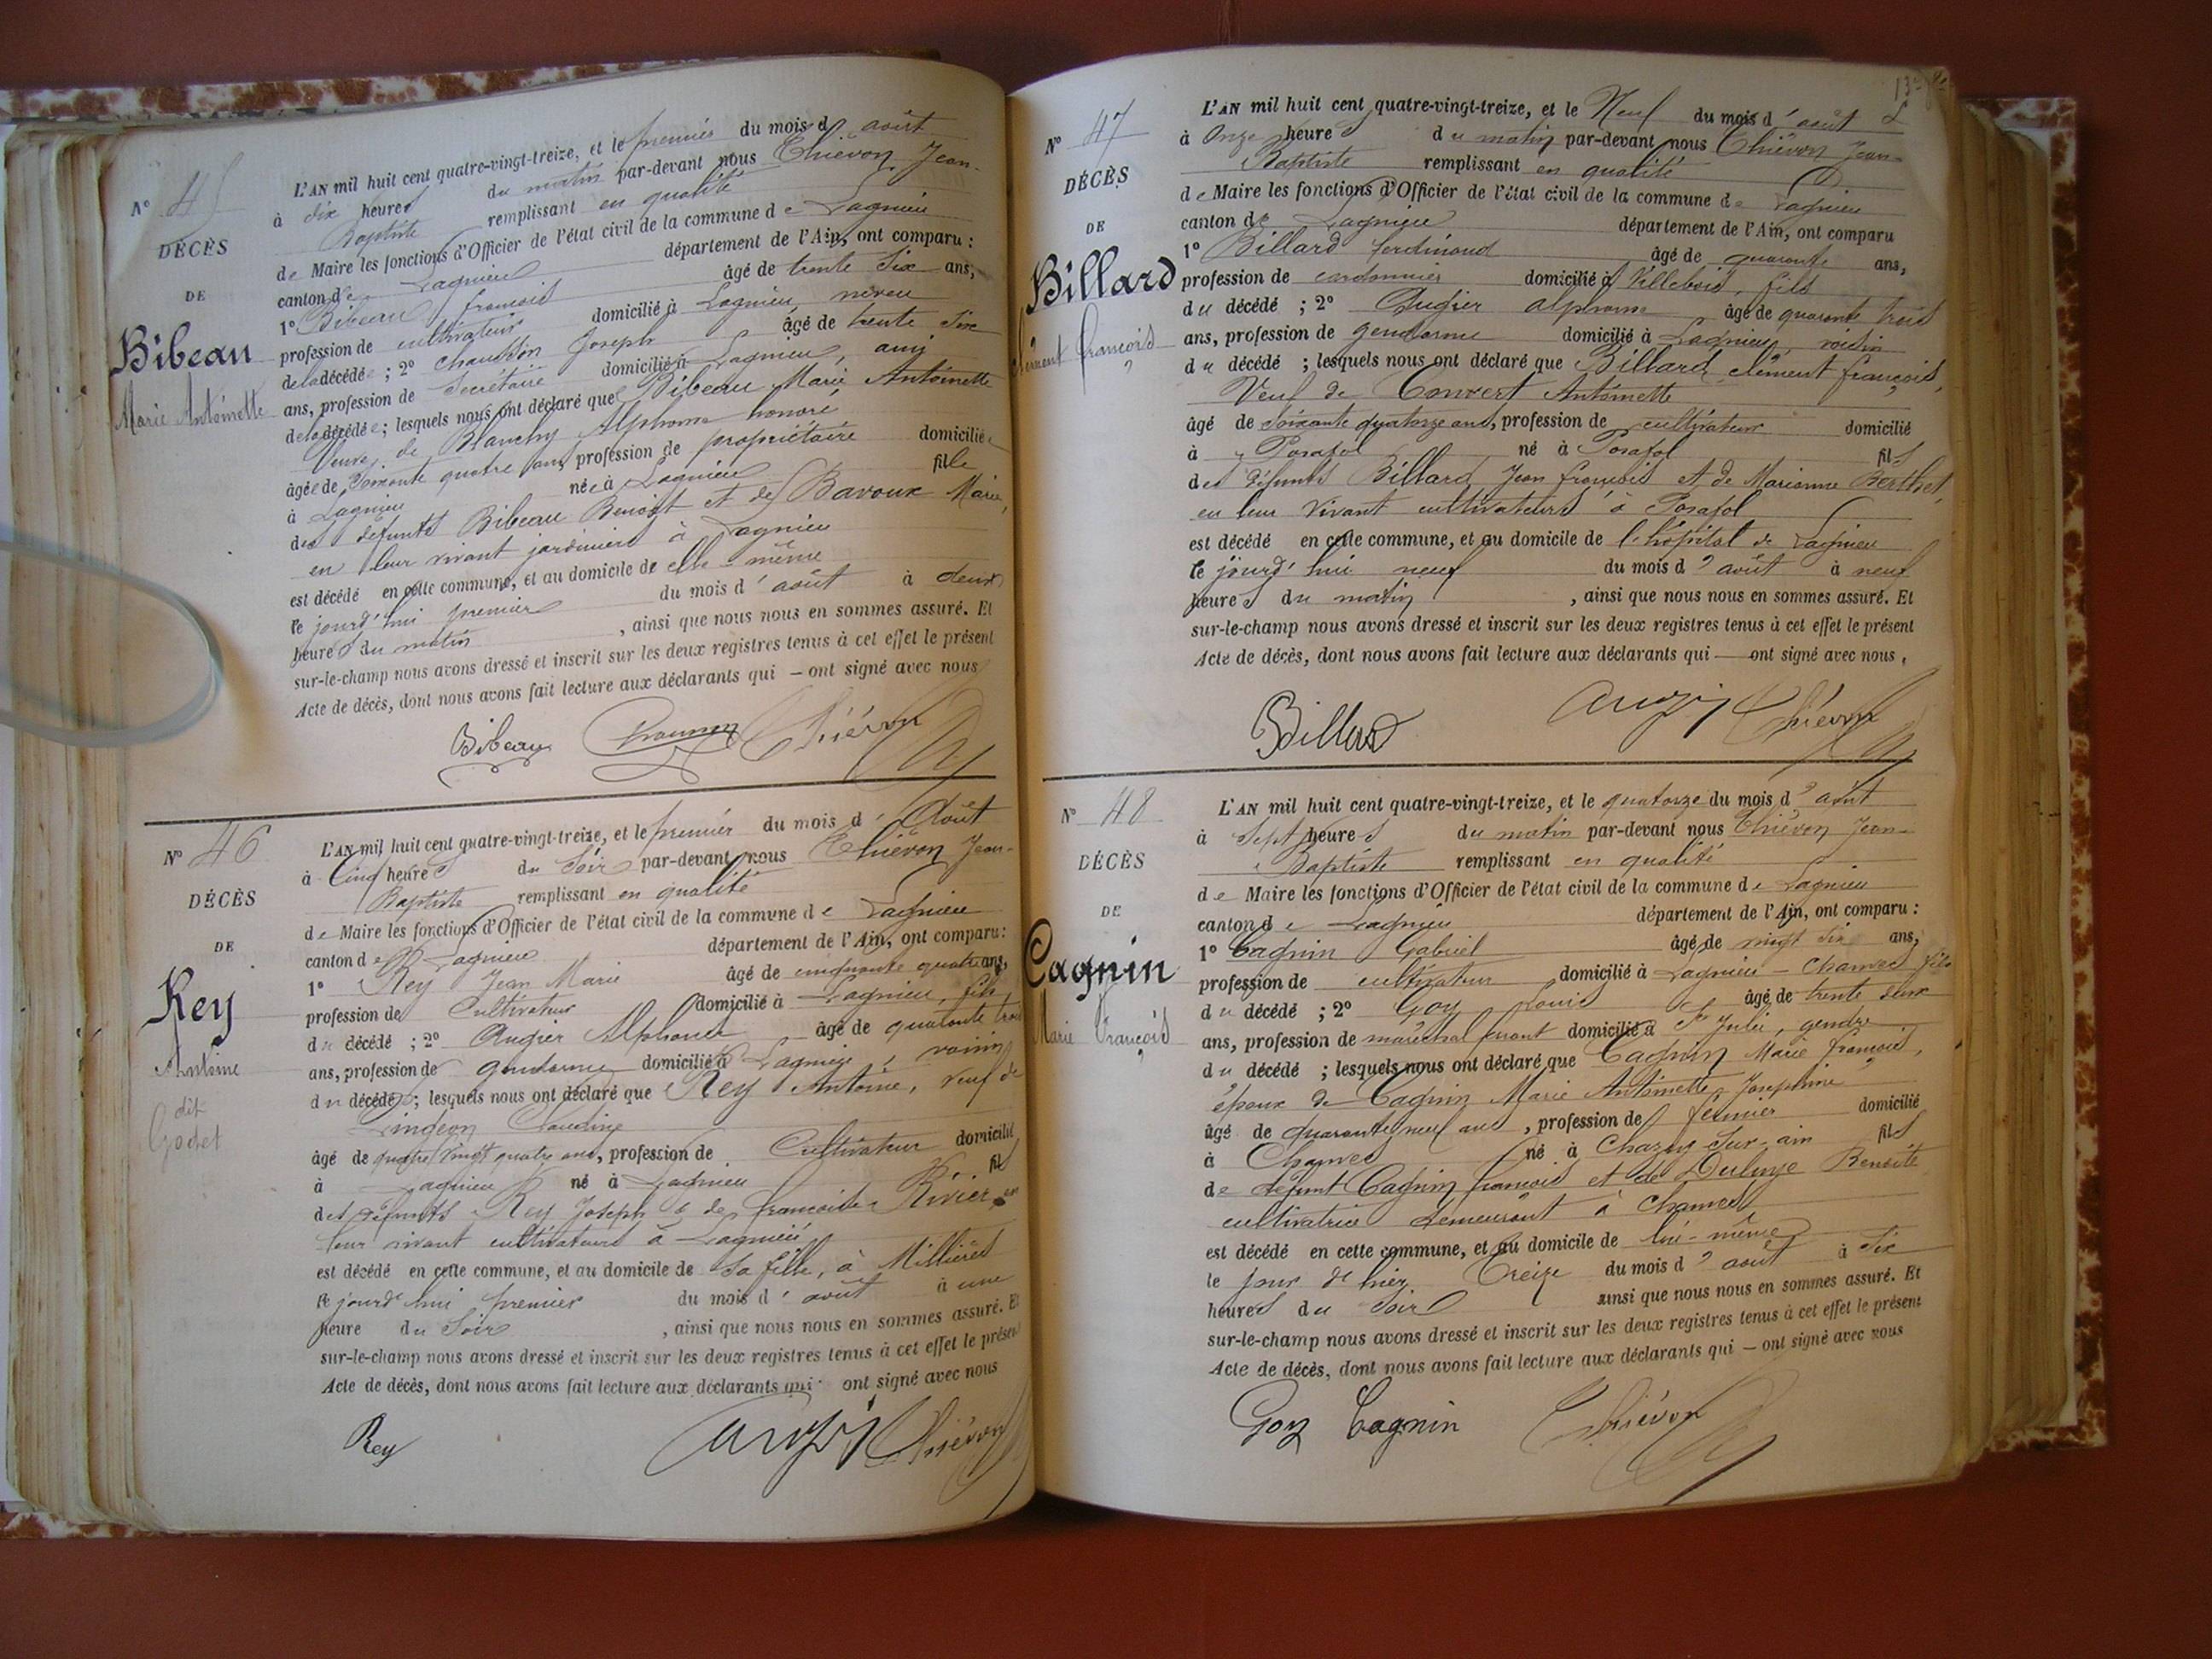 N° 45
DÉCÈS
DE
Bibeau
Marie Antoinette
L'AN mil huit cent quatre-vingt-treize, et le premier du mois d'août
à dix heures du matin par-devant nous Chievon Jean-
Baptiste remplissant en qualité
de Maire les fonctions d'Officier de l'état civil de la commune de Lagnieu
canton de Lagnieu département de l'Ain, ont comparu :
1° Bibeau françois âgé de trente six ans,
profession de cultivateur domicilié à Lagnieu, neveu
de la décédée ; 2° Joseph âgé de trente six
ans, profession de Secrétaire domicilié à Lagnieu, ami
de la décédée ; lesquels nous ont déclaré que Bibeau Marie Antoinette
Veuve de Blanchy Alphonse honoré
âgée de soixante quatre ans, profession de propriétaire domiciliée
à Lagnieu née à Lagnieu fille
des défunts Bibeau Benoit et de Bavoux Marie,
en leur vivant jardiniers à Lagnieu
est décédé en cette commune, et au domicile de elle-même
le jourd'hui premier du mois d'août à deux
heures du matin , ainsi que nous nous en sommes assuré. Et
sur-le-champ nous avons dressé et inscrit sur les deux registres tenus à cet effet le présent
Acte de décès, dont nous avons fait lecture aux déclarants qui — ont signé avec nous
Bibeau Chievon
N° 46
DÉCÈS
DE
Rey
Antoine
dit
Godet
L'AN mil huit cent quatre-vingt-treize, et le premier du mois d'Août
à Cinq heures du Soir par-devant nous Chiévon Jean-
Baptiste remplissant en qualité
de Maire les fonctions d'Officier de l'état civil de la commune de Lagnieu
canton de Lagnieu département de l'Ain, ont comparu :
1° Rey Jean Marie âgé de cinquante quatre ans,
profession de Cultivateur domicilié à Lagnieu, fils
du décédé ; 2° Augier Alphonse âgé de quarante trois
ans, profession de gendarme domicilié à Lagnieu, voisin
du décédé ; lesquels nous ont déclaré que Rey Antoine, veuf de
Claudine
âgé de quatre vingt quatre ans, profession de Cultivateur domicilié
à Lagnieu né à Lagnieu fils
des défunts Rey Joseph & de françoise Rivier en
leur vivant cultivateurs à Lagnieu
est décédé en cette commune, et au domicile de sa fille, à Millières
le jourd'hui premier du mois d'août à une
heure du Soir , ainsi que nous nous en sommes assuré. Et
sur-le-champ nous avons dressé et inscrit sur les deux registres tenus à cet effet le présent
Acte de décès, dont nous avons fait lecture aux déclarants qui ont signé avec nous
Rey Chiévon
N° 47
DÉCÈS
DE
Billard
Clément François
L'AN mil huit cent quatre-vingt-treize, et le Neuf du mois d'août
à Onze heures du matin par-devant nous Chiévon Jean-
Baptiste remplissant en qualité
de Maire les fonctions d'Officier de l'état civil de la commune de Lagnieu
canton de Lagnieu département de l'Ain, ont comparu
1° Billard ferdinand âgé de quarante ans,
profession de cordonnier domicilié à Villebois, fils
du décédé ; 2° Augier alphonse âgé de quarante trois
ans, profession de gendarme domicilié à Lagnieu, voisin
du décédé ; lesquels nous ont déclaré que Billard clément françois,
Veuf de Convert Antoinette
âgé de soixante quatorze ans, profession de cultivateur domicilié
à Posafol né à Posafol fils
des défunts Billard Jean françois et de Marianne Berthet,
en leur vivant cultivateurs à Posafol
est décédé en cette commune, et au domicile de l'hôpital de Lagnieu
le jourd'hui neuf du mois d'août à neuf
heures du matin , ainsi que nous nous en sommes assuré. Et
sur-le-champ nous avons dressé et inscrit sur les deux registres tenus à cet effet le présent
Acte de décès, dont nous avons fait lecture aux déclarants qui — ont signé avec nous.
Billard Chiévon
N° 48
DÉCÈS
DE
Cagnin
Marie François
L'AN mil huit cent quatre-vingt-treize, et le quatorze du mois d'août
à Sept heures du matin par-devant nous Chiévon Jean-
Baptiste remplissant en qualité
de Maire les fonctions d'Officier de l'état civil de la commune de Lagnieu
canton de Lagnieu département de l'Ain, ont comparu :
1° Cagnin Gabriel âgé de vingt six ans,
profession de cultivateur domicilié à Lagnieu - Charves fils
du décédé ; 2° Goy Louis âgé de trente deux
ans, profession de maréchal ferrant domicilié à St Julie, gendre
du décédé ; lesquels nous ont déclaré que Cagnin Marie françois,
époux de Cagnin Marie Antoinette Joséphine
âgé de quarante neuf ans, profession de fermier domicilié
à Charves né à Chazey-Sur-ain fils
de défunt Cagnin françois et de Benoite
cultivatrice demeurant à Charves
est décédé en cette commune, et au domicile de lui-même
le jour d'hier Treize du mois d'août à Six
heures du Soir ainsi que nous nous en sommes assuré. Et
sur-le-champ nous avons dressé et inscrit sur les deux registres tenus à cet effet le présent
Acte de décès, dont nous avons fait lecture aux déclarants qui — ont signé avec nous
Goy Cagnin Chiévon